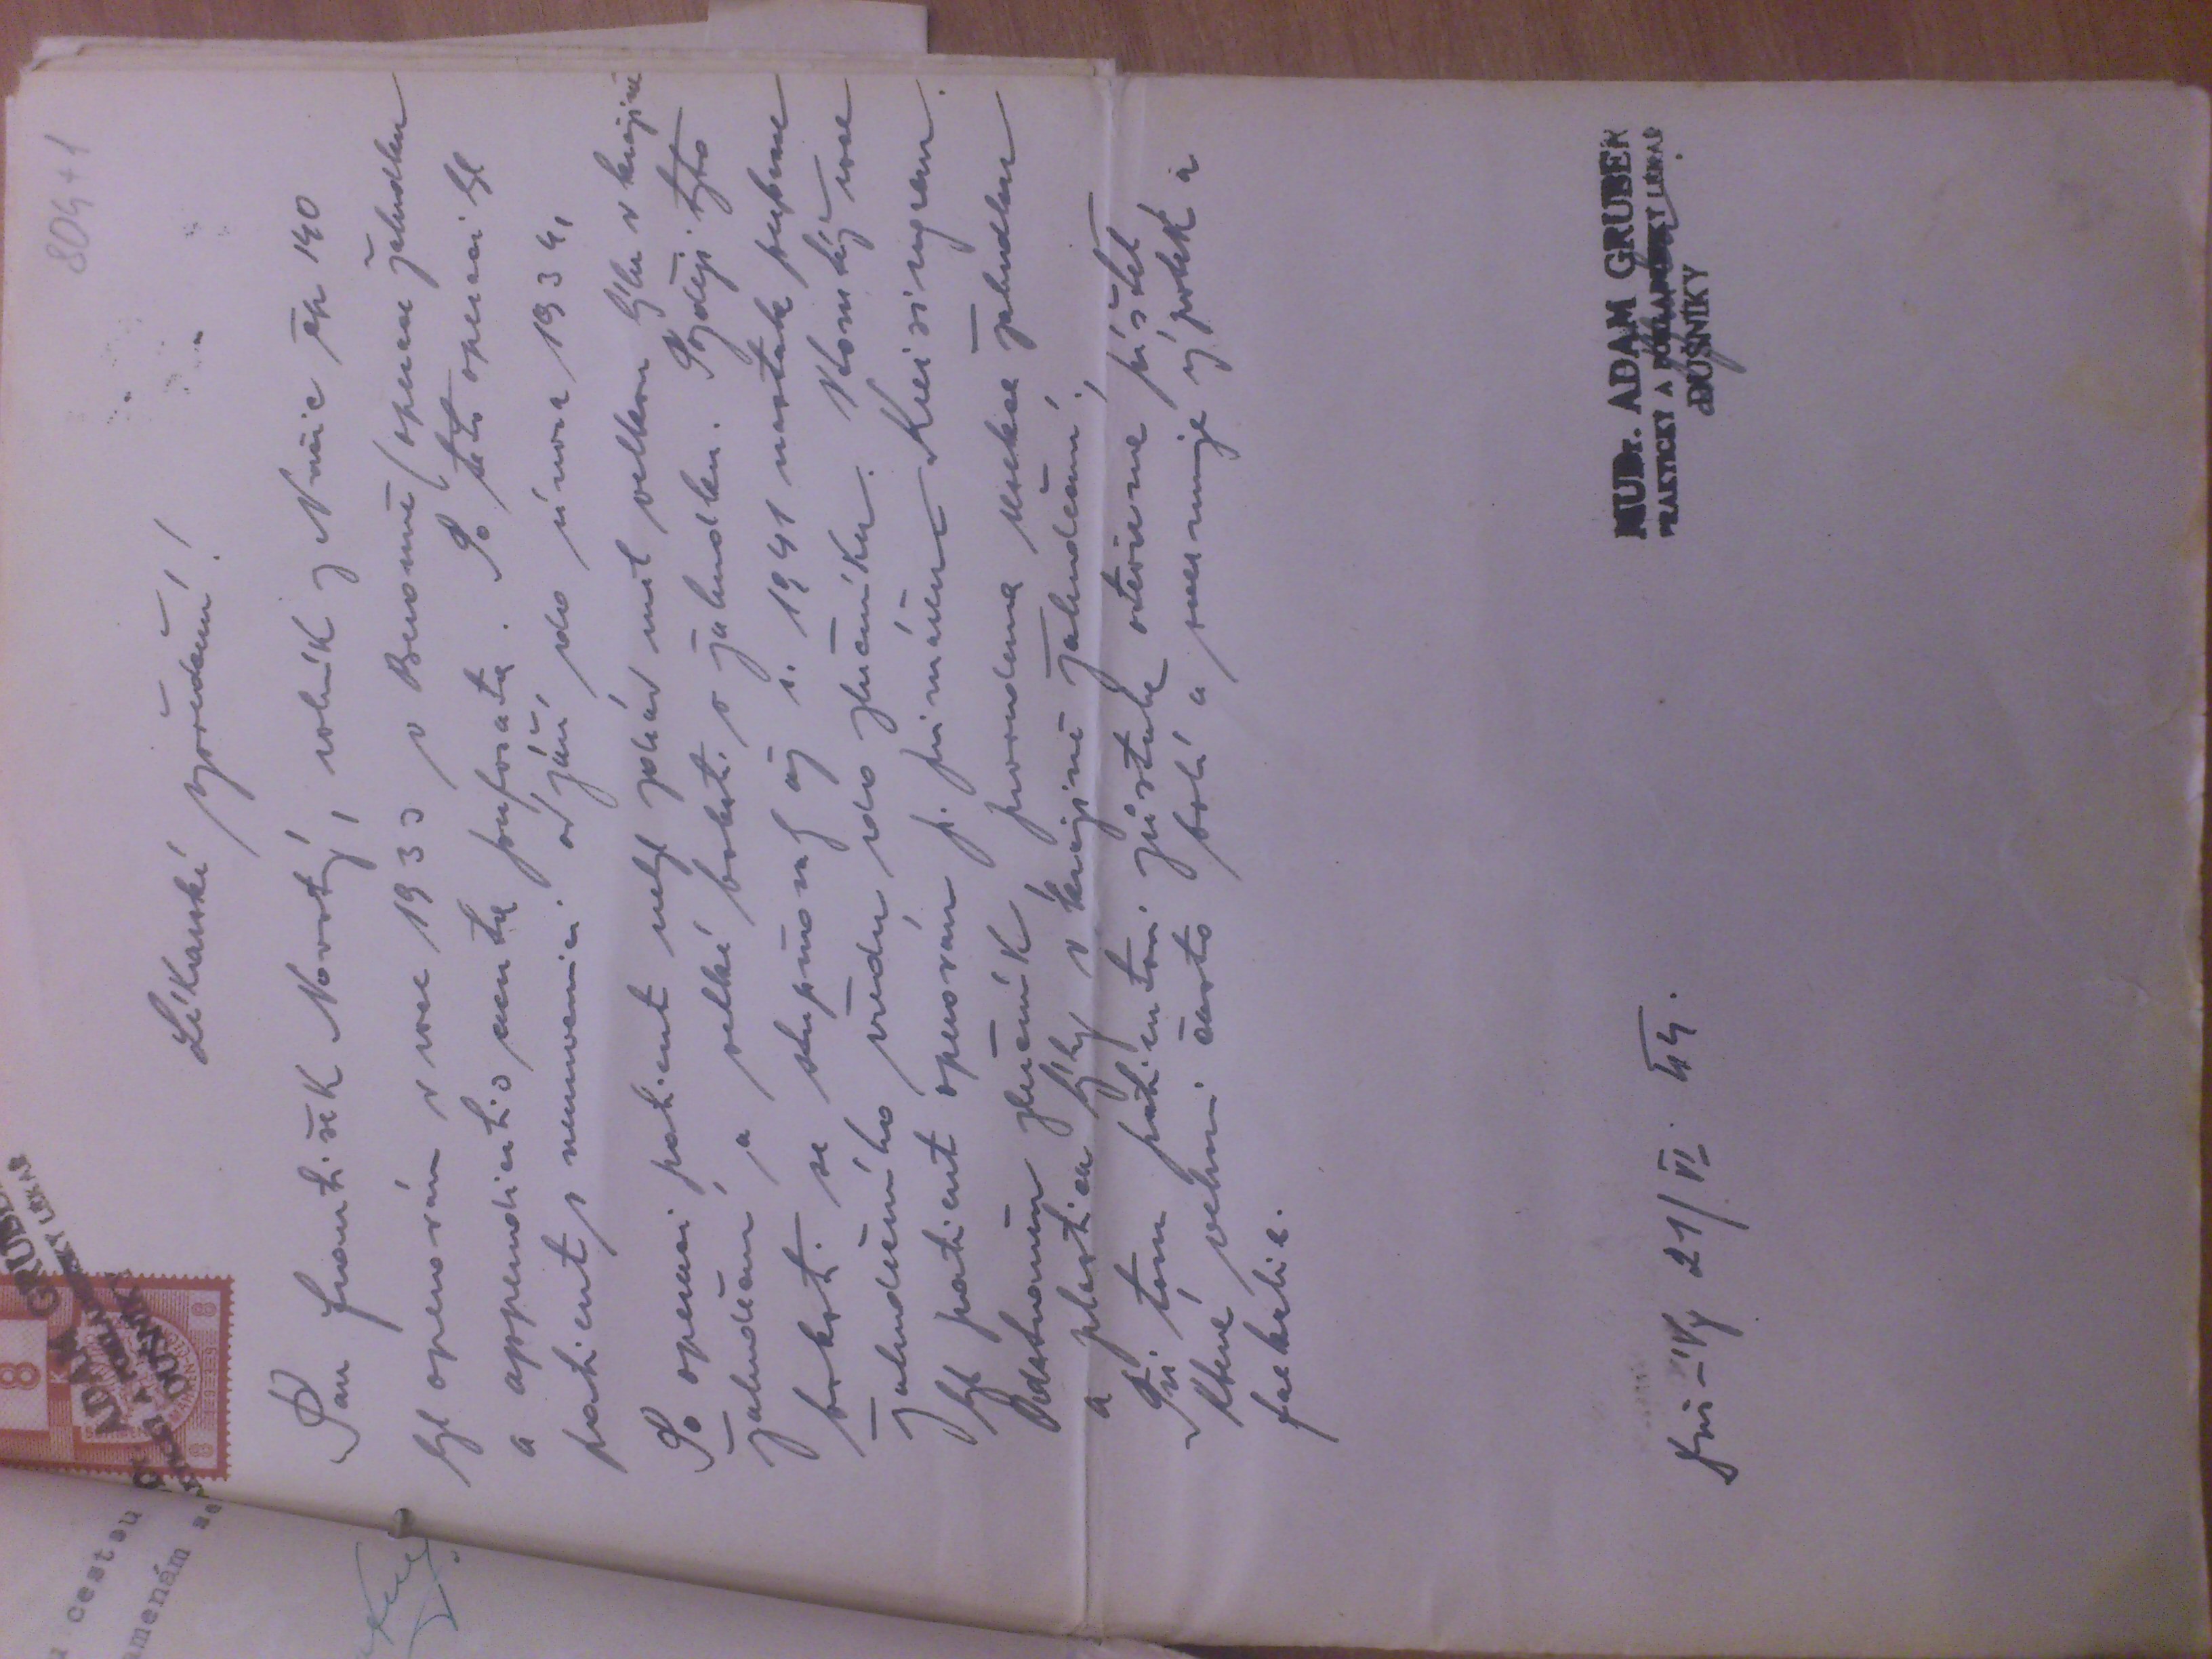 u cestou
amenám se
8
K
ADAM GRUBER
PRAKTICKÝ A POKLADENSKÝ LÉKAŘ
DUŠNÍKY
8 1939 8
804+1
Lékarské vysvědčení!
Pan František Novotný, rolník z Nučic čp 140
byl operován v roce 1933 v Berouně (operace žaludku
a appendicitis acuta perforata. Po této operaci byl
patient v nemocnici od září do února 1934,
Po operaci patient nebyl zdráv měl velkou kýlu v krajině
žaludeční a velké bolesti v žaludku. Později tyto
bolesti se stupňovaly až r. 1941 nastala perforace
žaludečního vředu do žlučníku. V tomtéž roce
byl patient operován p. primářem Kreisingrem.
Odstraněn žlučník, provedena resekce žaludku
a plastica kýly v krajině žaludeční.,
Při tom patientovi zůstala otevřena píštěl,
které velmi často bolí a secernuje výpotek a
faekalie.
Dušníky 21/VI. 44.
MUDr. ADAM GRUBER
PRAKTICKÝ A POKLADENSKÝ LÉKAŘ
DUŠNÍKY